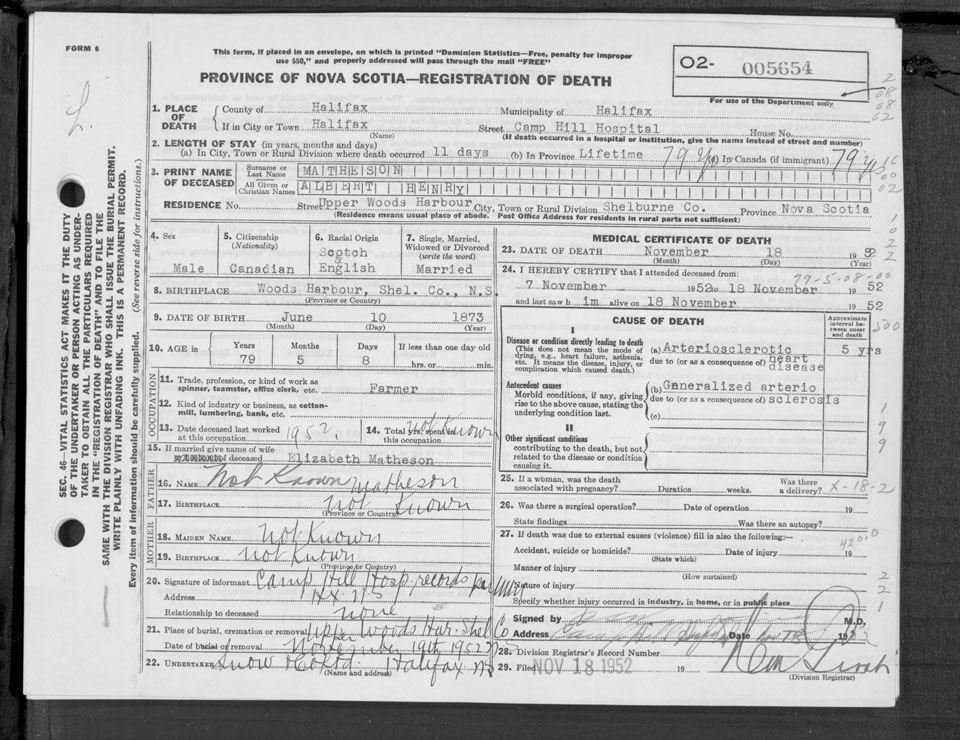 FORM 6
This form, if placed in an envelope, on which is printed "Dominion Statistics—Free, penalty for improper
use $50," and properly addressed will pass through the mail "FREE"
PROVINCE OF NOVA SCOTIA—REGISTRATION OF DEATH
O2- 005654
For use of the Department only
1. PLACE OF DEATH { County of Halifax Municipality of Halifax
If in City or Town Halifax Street Camp Hill Hospital House No.
(Name) (If death occurred in a hospital or institution, give the name instead of street and number)
2. LENGTH OF STAY (in years, months and days)
(a) In City, Town or Rural Division where death occurred 11 days (b) In Province Lifetime 79 yrs (c) In Canada (if immigrant) 79 yrs
3. PRINT NAME OF DECEASED { Surname or Last Name MATHESON
All Given or Christian Names ALBERT HENRY
RESIDENCE No. Street Upper Woods Harbour City, Town or Rural Division Shelburne Co. Province Nova Scotia
(Residence means usual place of abode. Post Office Address for residents in rural parts not sufficient)
4. Sex Male
5. Citizenship (Nationality) Canadian
6. Racial Origin Scotch & English
7. Single, Married, Widowed or Divorced (write the word) Married
8. BIRTHPLACE Woods Harbour, Shel. Co., N.S.
(Province or Country)
9. DATE OF BIRTH June 10 1873
(Month) (Day) (Year)
10. AGE in Years Months Days If less than one day old
79 5 8 hrs. or min.
OCCUPATION
11. Trade, profession, or kind of work as
spinner, teamster, office clerk, etc. Farmer
12. Kind of industry or business, as cotton-
mill, lumbering, bank, etc.
13. Date deceased last worked
at this occupation 1952.
14. Total yrs. spent in
this occupation Not Known
15. If married give name of wife
Elizabeth Matheson
FATHER
16. NAME Not Known Matheson
17. BIRTHPLACE Not Known
(Province or Country)
MOTHER
18. MAIDEN NAME Not Known
19. BIRTHPLACE Not Known
(Province or Country)
20. Signature of informant Camp Hill Hosp. records per
Address Hx. N S
Relationship to deceased none
21. Place of burial, cremation or removal Upper Woods Har. Shel Co
Date of burial or removal November 19th 1952
22. UNDERTAKER Snow & Co Ltd. Halifax NS
(Name and address)
MEDICAL CERTIFICATE OF DEATH
23. DATE OF DEATH November 18 1952
(Month) (Day) (Year)
79-5-08-00
24. I HEREBY CERTIFY that I attended deceased from:
7 November 1952 to 18 November 1952
and last saw h im alive on 18 November 1952
CAUSE OF DEATH
Approximate interval between onset and death
I
Disease or condition directly leading to death
(This does not mean the mode of
dying, e.g., heart failure, asthenia,
etc. It means the disease, injury, or
complication which caused death.)
(a) Arteriosclerotic 5 yrs
due to (or as a consequence of) heart disease
Antecedent causes
Morbid conditions, if any, giving
rise to the above cause, stating the
underlying condition last.
(b) Generalized arterio
due to (or as a consequence of) sclerosis
(c)
II
Other significant conditions
contributing to the death, but not
related to the disease or condition
causing it.
25. If a woman, was the death
associated with pregnancy? Duration weeks. Was there
a delivery? X-18-2
26. Was there a surgical operation? Date of operation 19
State findings Was there an autopsy?
27. If death was due to external causes (violence) fill in also the following:—
Accident, suicide or homicide? Date of injury 19
(State which)
Manner of injury
(How sustained)
Nature of injury
Specify whether injury occurred in industry, in home, or in public place
Signed by M.D.
Address Date
28. Division Registrar's Record Number
29. Filed NOV 18 1952 19
(Division Registrar)
SEC. 46—VITAL STATISTICS ACT MAKES IT THE DUTY
OF THE UNDERTAKER OR PERSON ACTING AS UNDER-
TAKER TO OBTAIN ALL THE PARTICULARS REQUIRED
IN THE "REGISTRATION OF DEATH" AND TO FILE THE
SAME WITH THE DIVISION REGISTRAR WHO SHALL ISSUE THE BURIAL PERMIT.
WRITE PLAINLY WITH UNFADING INK. THIS IS A PERMANENT RECORD.
Every item of information should be carefully supplied. (See reverse side for instructions.)